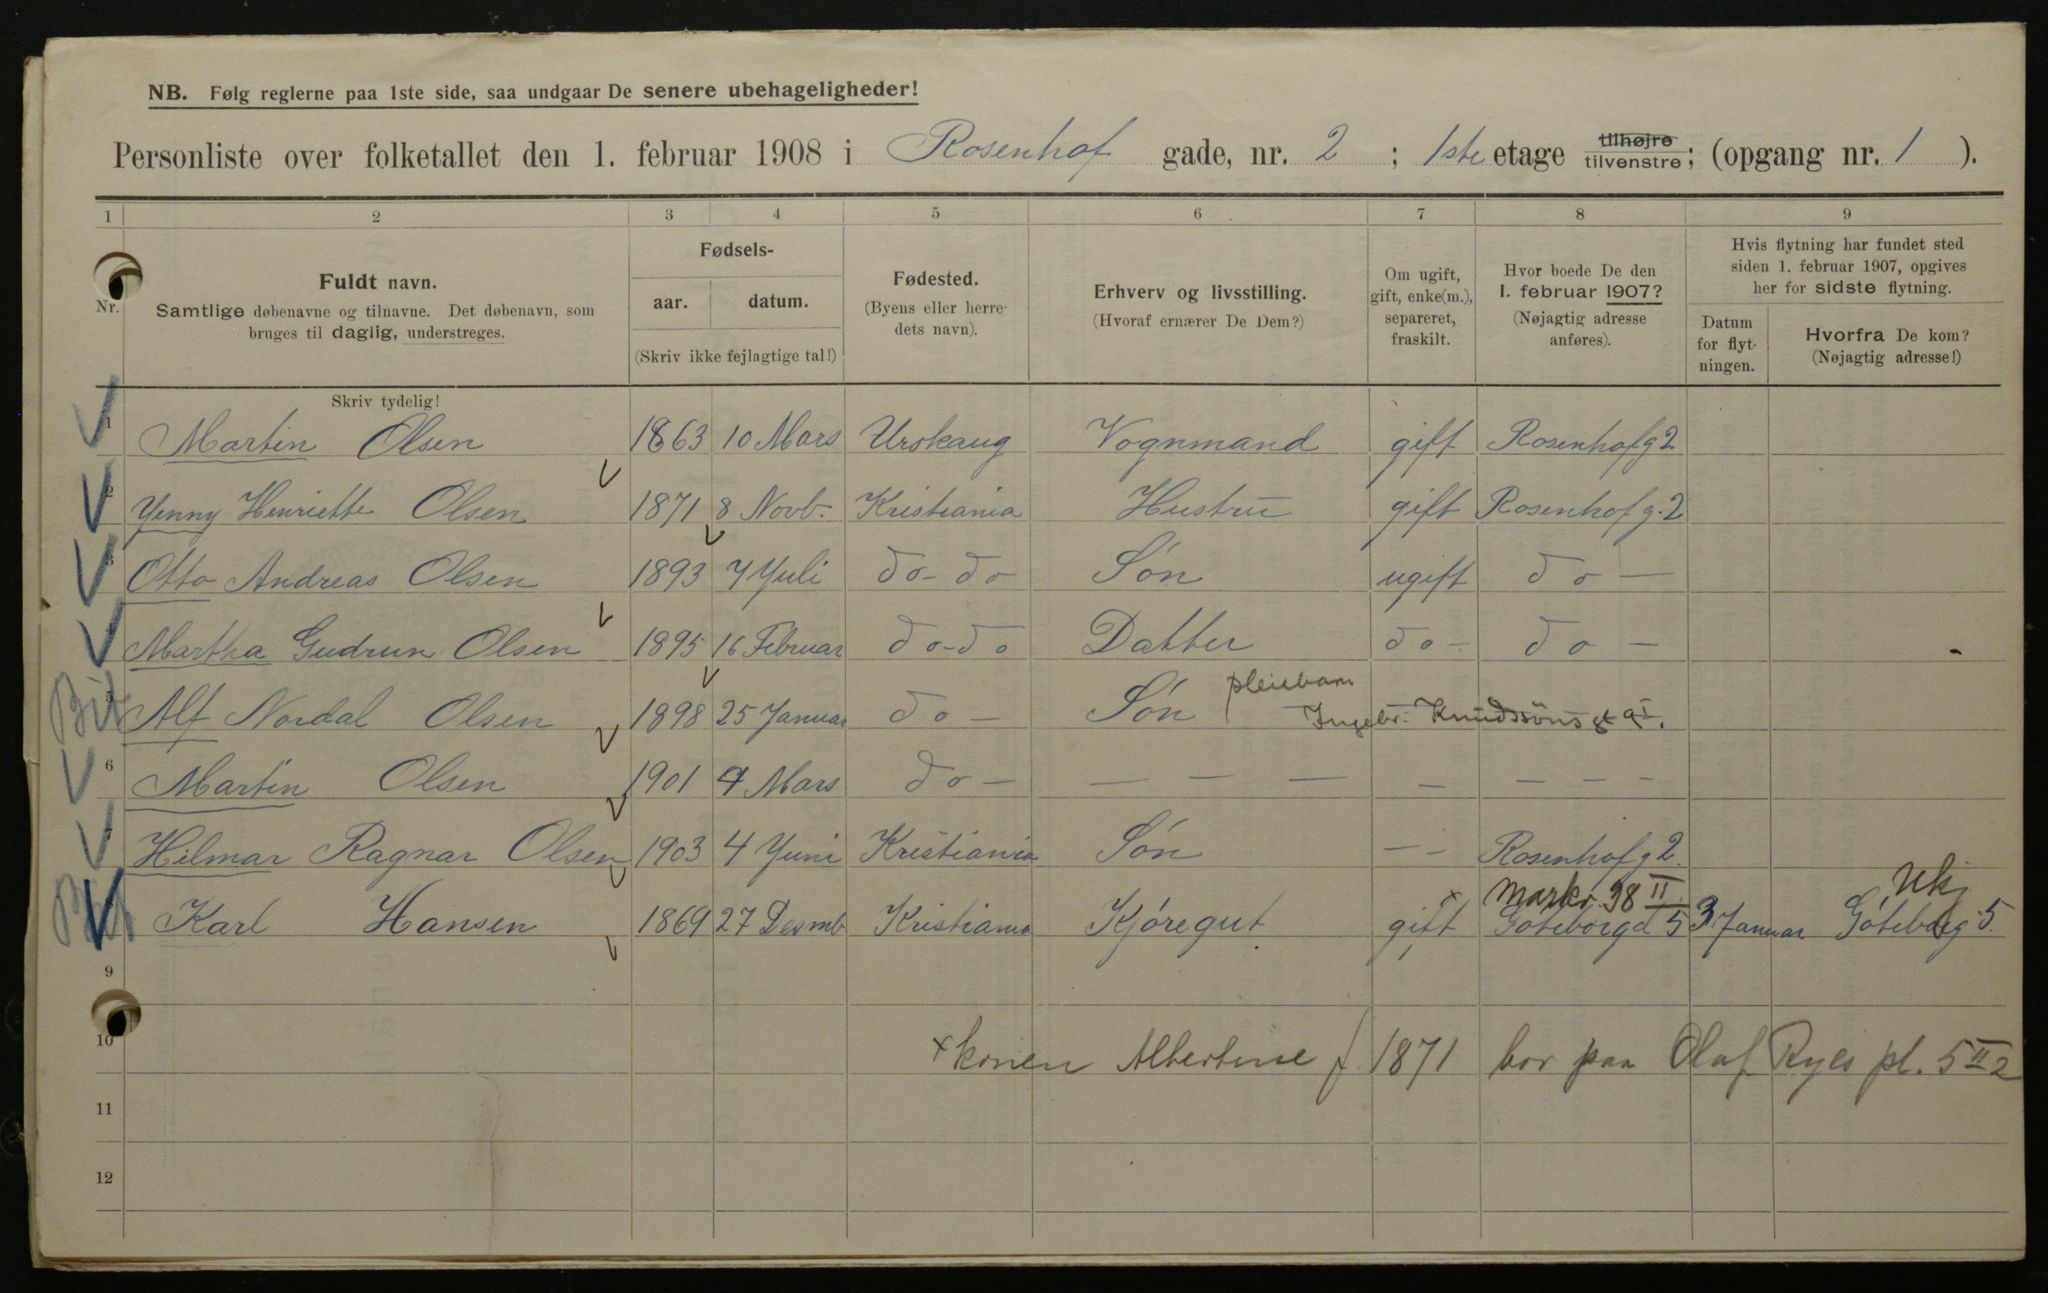 NB. Følg reglerne paa 1ste side, saa undgaar De senere ubehageligheder!
Personliste over folketallet den 1. februar 1908 i Rosenhof gade, nr. 2 ; 1ste etage tilhøjre tilvenstre; (opgang nr. 1 ).
1 2 3 4 5 6 7 8 9
Nr.
Fuldt navn.
Samtlige døbenavne og tilnavne. Det døbenavn, som
bruges til daglig, understreges.
Fødsels-
aar. datum.
(Skriv ikke fejlagtige tal!)
Fødested.
(Byens eller herre-
dets navn).
Erhverv og livsstilling.
(Hvoraf ernærer De Dem?)
Om ugift,
gift, enke(m.),
separeret,
fraskilt.
Hvor boede De den
1. februar 1907?
(Nøjagtig adresse
anføres).
Hvis flytning har fundet sted
siden 1. februar 1907, opgives
her for sidste flytning.
Datum
for flyt-
ningen.
Hvorfra De kom?
(Nøjagtig adresse!)
Skriv tydelig!
1 Martin Olsen 1863 10 Mars Urskaug Vognmand gift Rosenhofg 2
2 Yenny Henriette Olsen 1871 8 Novb. Kristiania Hustru gift Rosenhof g. 2
3 Otto Andreas Olsen 1893 7 Yuli do - do Søn ugift do —
4 Martha Gudrun Olsen 1895 16 Februar do - do Datter do - do —
pleiebarn
5 Alf Nordal Olsen 1898 25 Januar do — Søn Ingebr. Knudssøns gt 9 I.
6 Martin Olsen 1901 4 Mars do — — — — — — — —
7 Hilmar Ragnar Olsen 1903 4 Yuni Kristiania Søn — - Rosenhof g 2.
Markv. 38 II Ukj
Karl Hansen 1869 27 Desmb Kristiania Kjøregut gift x Gøteborgd 5 3 Januar Gøteborg 5.
9
10 x konen Albertine f 1871 bor paa Olaf Ryes pl. 5 II 2
11
12